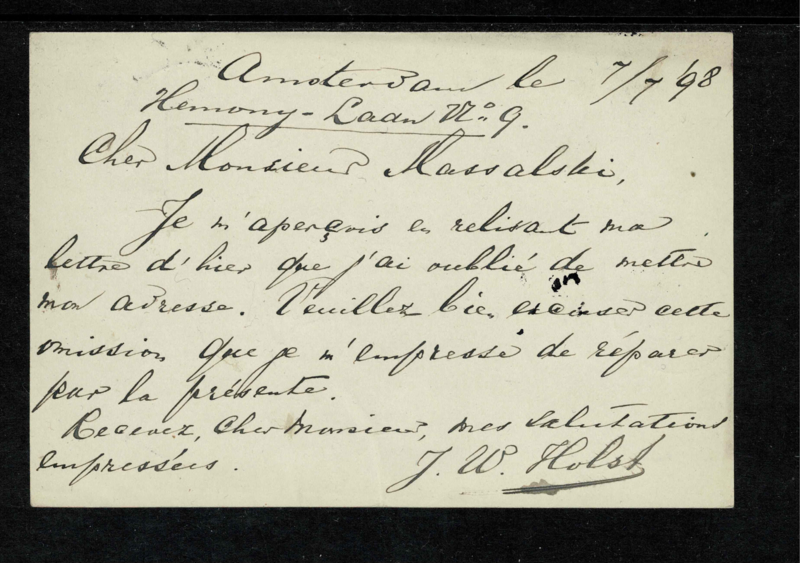 Amsterdam le 7/7 '98
Hemony-Laan No 9.
Cher Monsieur Massalski,
Je m'aperçois en relisant ma
lettre d'hier que j'ai oublié de mettre
mon adresse. Veuillez bien excuser cette
omission que je m'empresse de réparer
par la présente.
Recevez, Cher Monsieur, mes salutations
empressées.
J. W. Holst